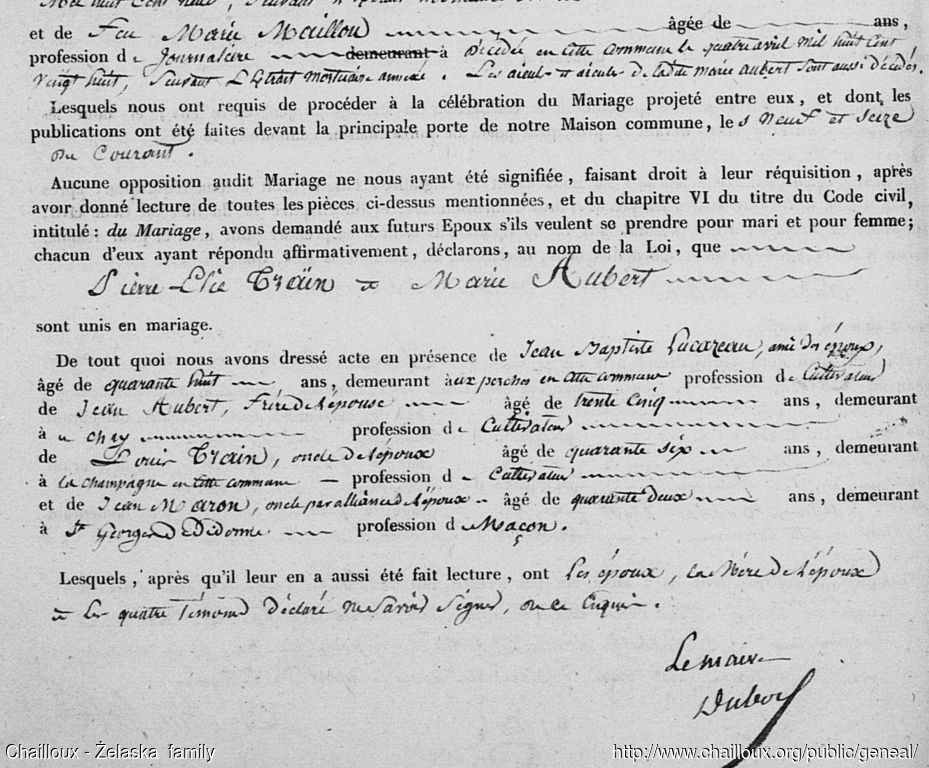 Mil huit Cent neuf, Suivant
et de Feu Marie Maillou âgée de ans,
profession de Journalière demeurant à Décédée en cette commune le quatre avril Mil huit Cent
vingt huit, Suivant l'Extrait mortuaire annexé. Les aieuls et aieules de ladite marie aubert Sont aussi décédés.
Lesquels nous ont requis de procéder à la célébration du Mariage projeté entre eux, et dont les
publications ont été faites devant la principale porte de notre Maison commune, le s Neuf et Seize
du Courant.
Aucune opposition audit Mariage ne nous ayant été signifiée, faisant droit à leur réquisition, après
avoir donné lecture de toutes les pièces ci-dessus mentionnées, et du chapitre VI du titre du Code civil,
intitulé : du Mariage, avons demandé aux futurs Epoux s'ils veulent se prendre pour mari et pour femme;
chacun d'eux ayant répondu affirmativement, déclarons, au nom de la Loi, que
Pierre Elie Traïn et Marie Aubert
sont unis en mariage.
De tout quoi nous avons dressé acte en présence de Jean Baptiste Lucazeau, ami des époux,
âgé de quarante huit ans, demeurant aux perches en cette commune profession de Cultivateur
de Jean Aubert, Frère de l'épouse âgé de trente Cinq ans, demeurant
à a chay profession de Cultivateur
de Louis Train, oncle de l'époux âgé de quarante six ans, demeurant
à la champagne en cette commune profession de Cultivateur
et de Jean Maron, oncle par alliance de l'époux âgé de quarante deux ans, demeurant
à St Georges De Didonne profession de Maçon.
Lesquels, après qu'il leur en a aussi été fait lecture, ont Les époux, la Mère de l'époux
et les quatre témoins déclaré ne Savoir Signer, de ce Enquis.
Le maire
Dubois
Chailloux - Żelaska family http://www.chailloux.org/public/geneal/